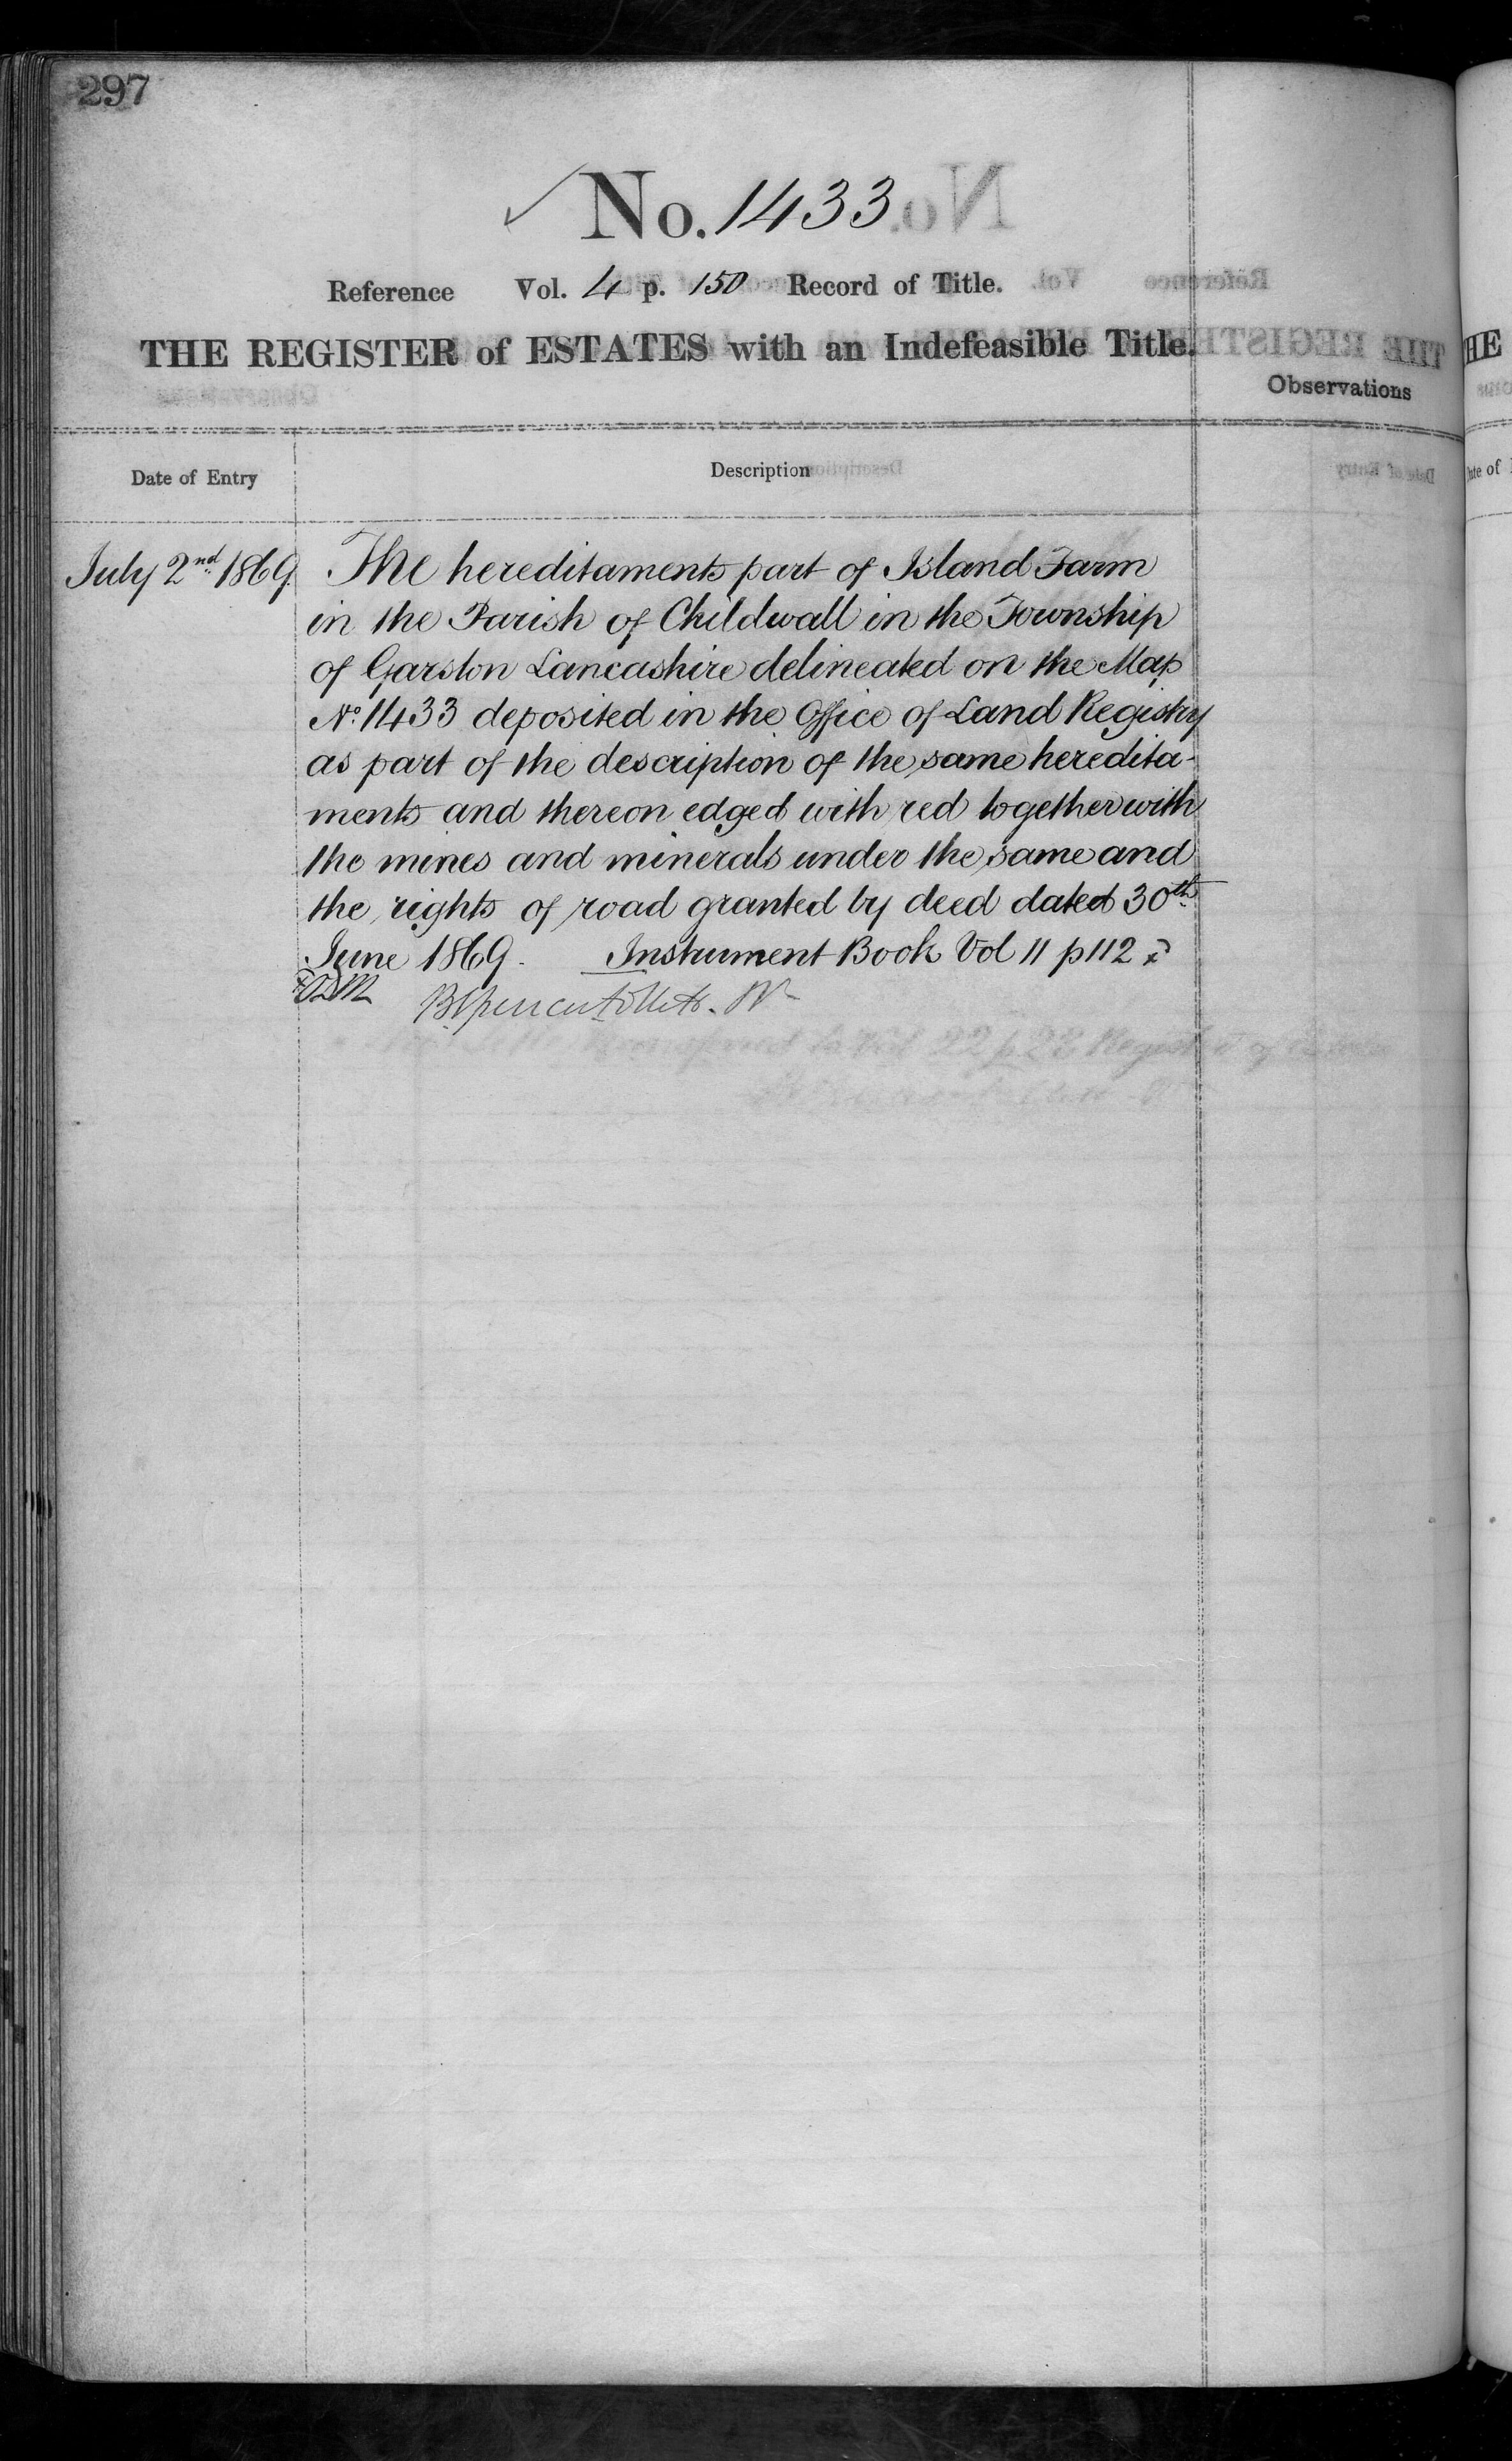 297
No. 1433
Reference Vol. 4 p. 150 Record of Title.
THE REGISTER of ESTATES with an Indefeasible Title.
Observations
Date of Entry
Description
July 2nd 1869
The hereditaments part of Island Farm
in the Parish of Childwall in the Township
of Garston Lancashire delineated on the Map
No. 1433 deposited in the Office of Land Registry
as part of the description of the same heredita-
ments and thereon edged with red together with
the mines and minerals under the same and
the rights of road granted by deed dated 30th
June 1869. Instrument Book Vol 11 p 112
HE